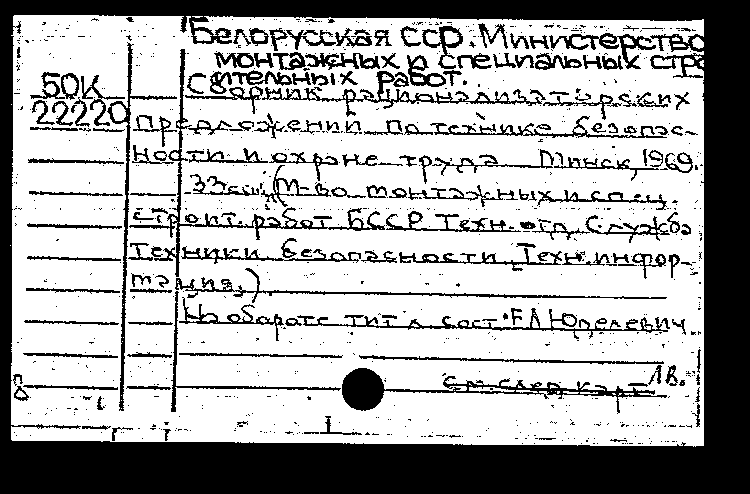 Белорусская сср. Министерство
монтажных и специальных стро
ительных работ.
50К Сборник рационализаторских
22220 предложений по технике безопас-
ности и охране труда Минск, 1969.
33 (М-во монтажных и спец.
строит. работ БССР Техн. отд. Служба
техники безопасности. Техн. инфор-
мация.)
На обороте тит л сост. Юделевич
см след карт